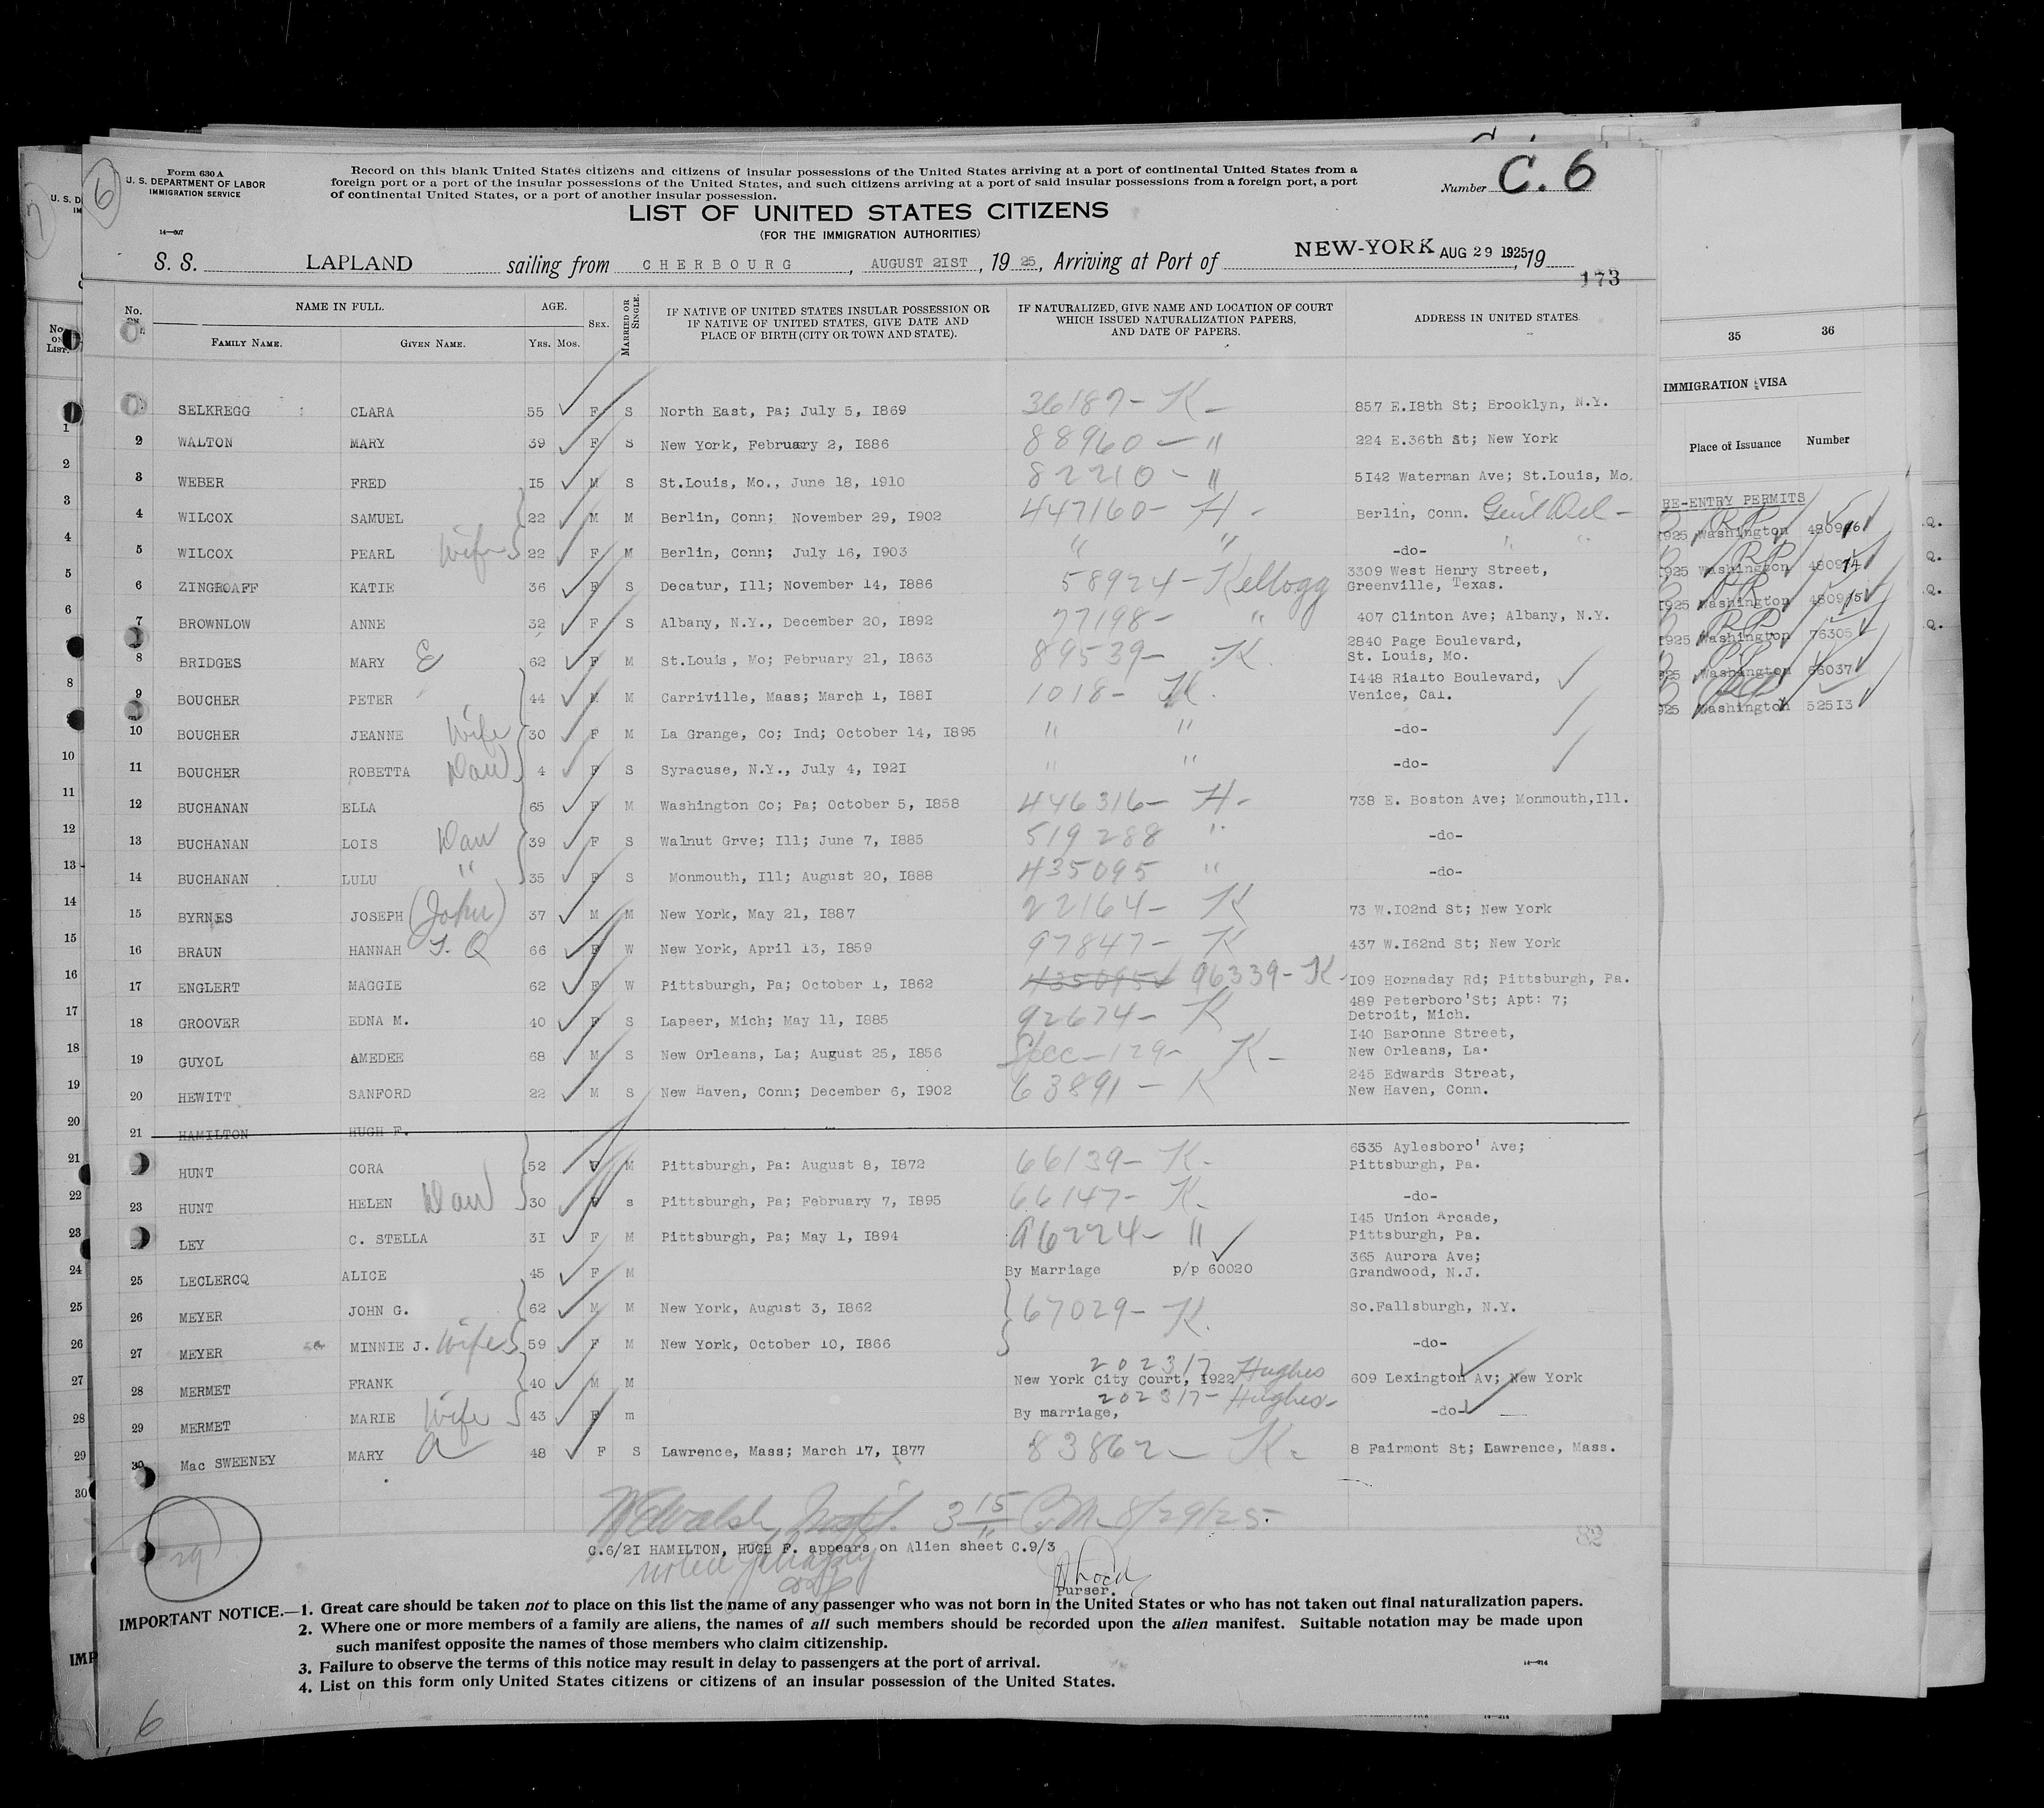 Form 630 A
U. S. DEPARTMENT OF LABOR
IMMIGRATION SERVICE
14—607
6
Record on this blank United States citizens and citizens of insular possessions of the United States arriving at a port of continental United States from a
foreign port or a port of the insular possessions of the United States, and such citizens arriving at a port of said insular possessions from a foreign port, a port
of continental United States, or a port of another insular possession.
Number C. 6
LIST OF UNITED STATES CITIZENS
(FOR THE IMMIGRATION AUTHORITIES)
S. S. LAPLAND sailing from CHERBOURG, AUGUST 2IST, 19 25, Arriving at Port of NEW-YORK AUG 29 1925, 19
173
No. NAME IN FULL. AGE. SEX. MARRIED OR SINGLE. IF NATIVE OF UNITED STATES INSULAR POSSESSION OR IF NATIVE OF UNITED STATES, GIVE DATE AND PLACE OF BIRTH (CITY OR TOWN AND STATE). IF NATURALIZED, GIVE NAME AND LOCATION OF COURT WHICH ISSUED NATURALIZATION PAPERS, AND DATE OF PAPERS. ADDRESS IN UNITED STATES.
FAMILY NAME. GIVEN NAME. YRS. MOS.
SELKREGG CLARA 55 F S North East, Pa; July 5, I869 36187- K- 857 E.I8th St; Brooklyn, N.Y.
2 WALTON MARY 39 F S New York, February 2, I886 88960 - " 224 E.36th St; New York
3 WEBER FRED I5 M S St.Louis, Mo., June 18, 1910 82210- " 5I42 Waterman Ave; St.Louis, Mo.
4 WILCOX SAMUEL 22 M M Berlin, Conn; November 29, I902 447160- H - Berlin, Conn.
5 WILCOX PEARL Wife 22 F M Berlin, Conn; July 16, I903 " " -do-
6 ZINGROAFF KATIE 36 F S Decatur, Ill; November 14, I886 58924- Kellogg 3309 West Henry Street, Greenville, Texas.
7 BROWNLOW ANNE 32 F S Albany, N.Y., December 20, I892 77198- " 407 Clinton Ave; Albany, N.Y.
8 BRIDGES MARY E 62 F M St.Louis, Mo; February 21, I863 89539- K. 2840 Page Boulevard, St. Louis, Mo.
9 BOUCHER PETER 44 M M Carriville, Mass; March 1, I88I 1018- K. I448 Rialto Boulevard, Venice, Cal.
10 BOUCHER JEANNE Wife 30 F M La Grange, Co; Ind; October 14, I895 " " -do-
11 BOUCHER ROBETTA Dau 4 F S Syracuse, N.Y., July 4, I92I " " -do-
12 BUCHANAN ELLA 65 F M Washington Co; Pa; October 5, I858 446316- H- 738 E. Boston Ave; Monmouth,Ill.
13 BUCHANAN LOIS Dau 39 F S Walnut Grve; Ill; June 7, I885 519288 " -do-
14 BUCHANAN LULU " 35 F S Monmouth, Ill; August 20, I888 435095 " -do-
15 BYRNES JOSEPH (John) 37 M M New York, May 21, I887 22164- K 73 W.I02nd St; New York
16 BRAUN HANNAH T. Q 66 F W New York, April 13, I859 97847- K 437 W.I62nd St; New York
17 ENGLERT MAGGIE 62 F W Pittsburgh, Pa; October 1, I862 435095 96339- K- I09 Hornaday Rd; Pittsburgh, Pa.
18 GROOVER EDNA M. 40 F S Lapeer, Mich; May 11, I885 92674- K 489 Peterboro'St; Apt: 7; Detroit, Mich.
19 GUYOL AMEDEE 68 M S New Orleans, La; August 25, I856 Spec-129- K- I40 Baronne Street, New Orleans, La.
20 HEWITT SANFORD 22 M S New Haven, Conn; December 6, I902 63891 - K 245 Edwards Street, New Haven, Conn.
21 HAMILTON HUGH F.
HUNT CORA 52 F M Pittsburgh, Pa: August 8, I872 66139- K- 6535 Aylesboro' Ave; Pittsburgh, Pa.
23 HUNT HELEN Dau 30 F s Pittsburgh, Pa; February 7, I895 66147- K. -do-
LEY C. STELLA 3I F M Pittsburgh, Pa; May 1, I894 96224- " I45 Union Arcade, Pittsburgh, Pa.
25 LECLERCQ ALICE 45 F M By Marriage p/p 60020 365 Aurora Ave; Grandwood, N.J.
26 MEYER JOHN G. 62 M M New York, August 3, I862 67029- K. So.Fallsburgh, N.Y.
27 MEYER MINNIE J. Wife 59 F M New York, October 10, I866 -do-
28 MERMET FRANK 40 M M New York City Court, I922 202317 Hughes 609 Lexington Av; New York
29 MERMET MARIE Wife 43 F m By marriage, 202317- Hughes- -do-
30 Mac SWEENEY MARY A 48 F S Lawrence, Mass; March 17, I877 83862- K. 8 Fairmont St; Lawrence, Mass.
3 15 P.M. 8/29/25.
C.6/2I HAMILTON, HUGH F. appears on Alien sheet C.9/3
Purser.
29
IMPORTANT NOTICE.—1. Great care should be taken not to place on this list the name of any passenger who was not born in the United States or who has not taken out final naturalization papers.
2. Where one or more members of a family are aliens, the names of all such members should be recorded upon the alien manifest. Suitable notation may be made upon
such manifest opposite the names of those members who claim citizenship.
3. Failure to observe the terms of this notice may result in delay to passengers at the port of arrival.
4. List on this form only United States citizens or citizens of an insular possession of the United States.
14—214
6
35 36
IMMIGRATION VISA
Place of Issuance Number
RE-ENTRY PERMITS
1925 Washington
1925 Washington
1925 Washington
1925 Washington 76305
925 Washington 56037
925 Washington 52513